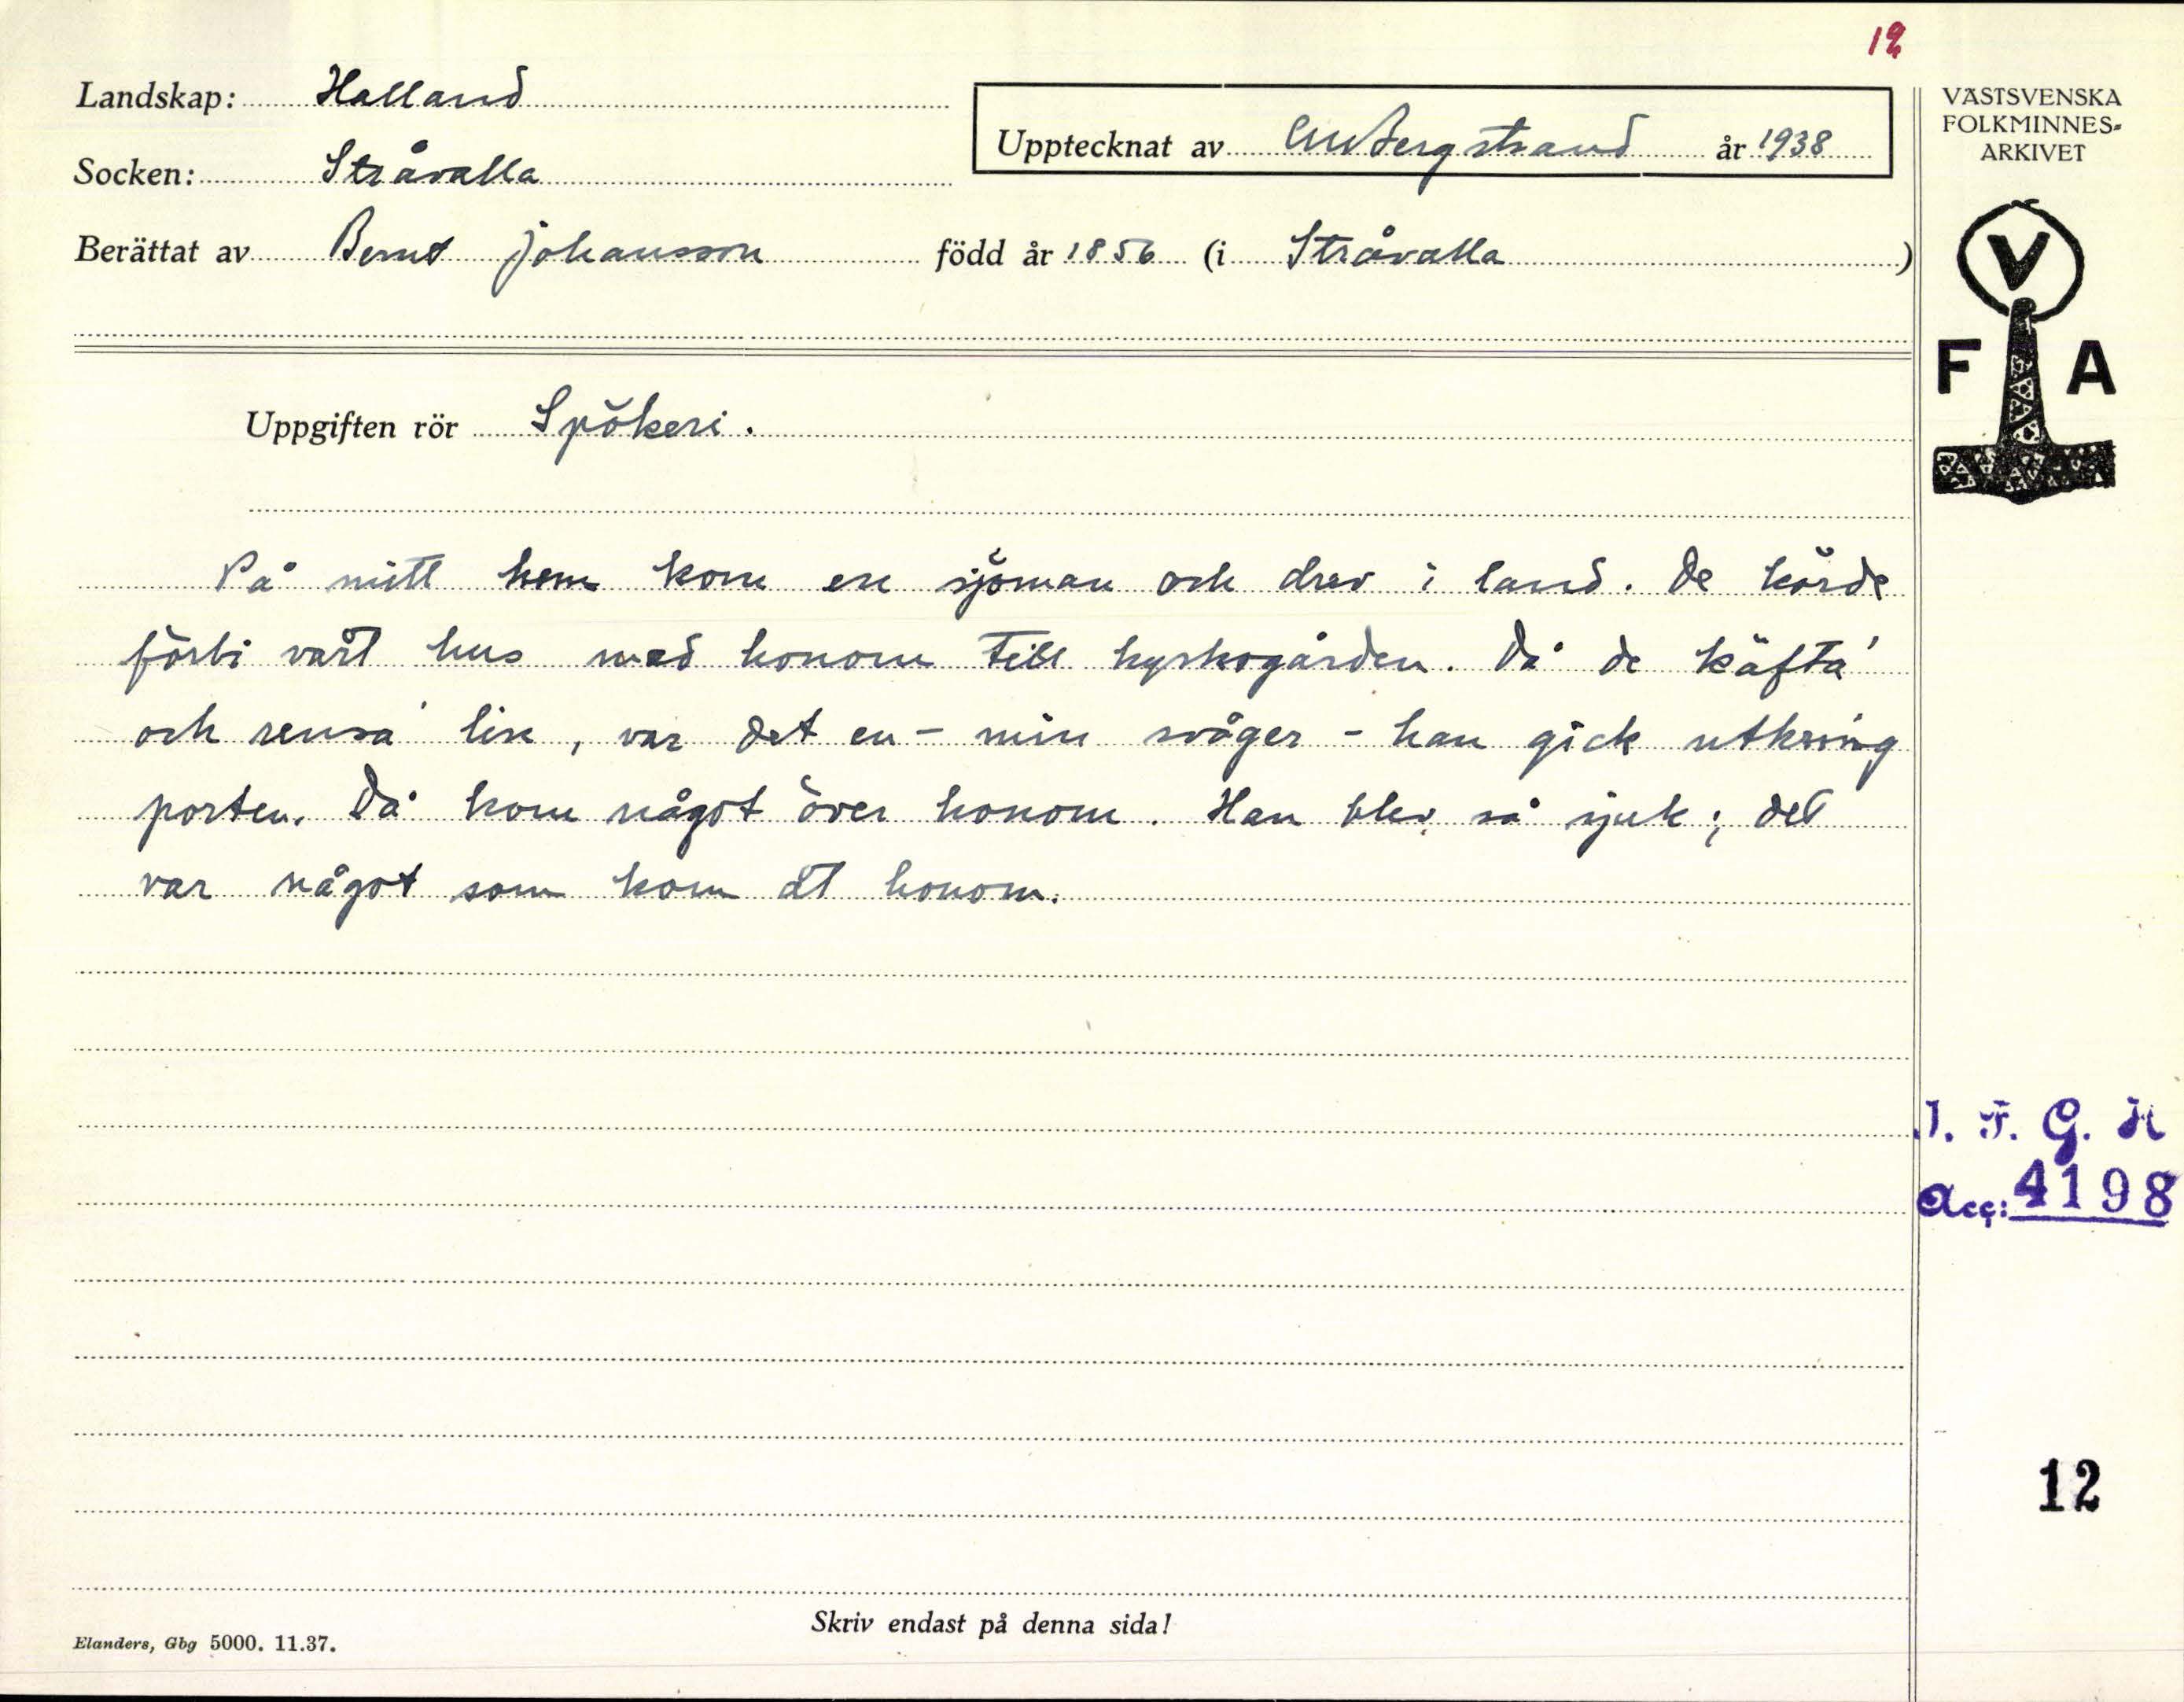 12
Landskap: Halland
VÄSTSVENSKA
FOLKMINNES-
ARKIVET
Upptecknat av CM Bergstrand år 1938
Socken: Stråvalla
Berättat av Bernt Johansson född år 1856 (i Stråvalla)
V
F A
Uppgiften rör Spökeri.
På mitt hem kom en sjöman och drev i land. De körde
förbi vårt hus med honom till kyrkogården. Då de käfta'
och rensa' lin, var det en - min svåger - han gick utkring
porten. Då kom något över honom. Han blev så sjuk; det
var något som kom åt honom.
I. F. G. H
Acc: 4198
12
Skriv endast på denna sida!
Elanders, Gbg 5000. 11.37.